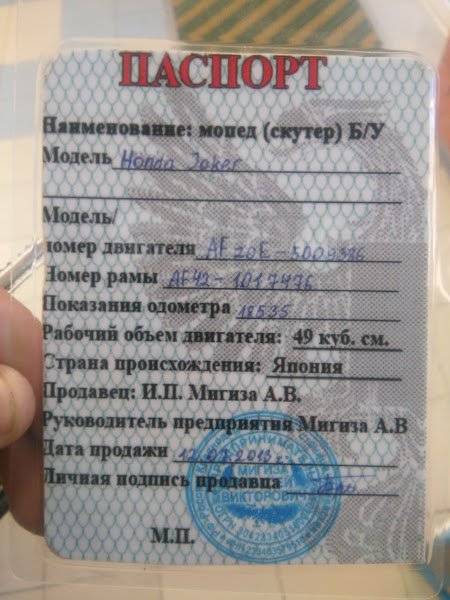 ПАСПОРТ
Наименование: мопед (скутер) Б/У
Модель Honda Joker
Модель/
номер двигателя AF20E-5009386
Номер рамы AF42-1017476
Показания одометра 18535
Рабочий объем двигателя: 49 куб. см.
Страна происхождения: Япония
Продавец: И.П. Мигиза А.В.
Руководитель предприятия Мигиза А.В
Дата продажи 12.07.2013 г.
Личная подпись продавца
МИГИЗА
ВИКТОРОВИЧ
М.П.